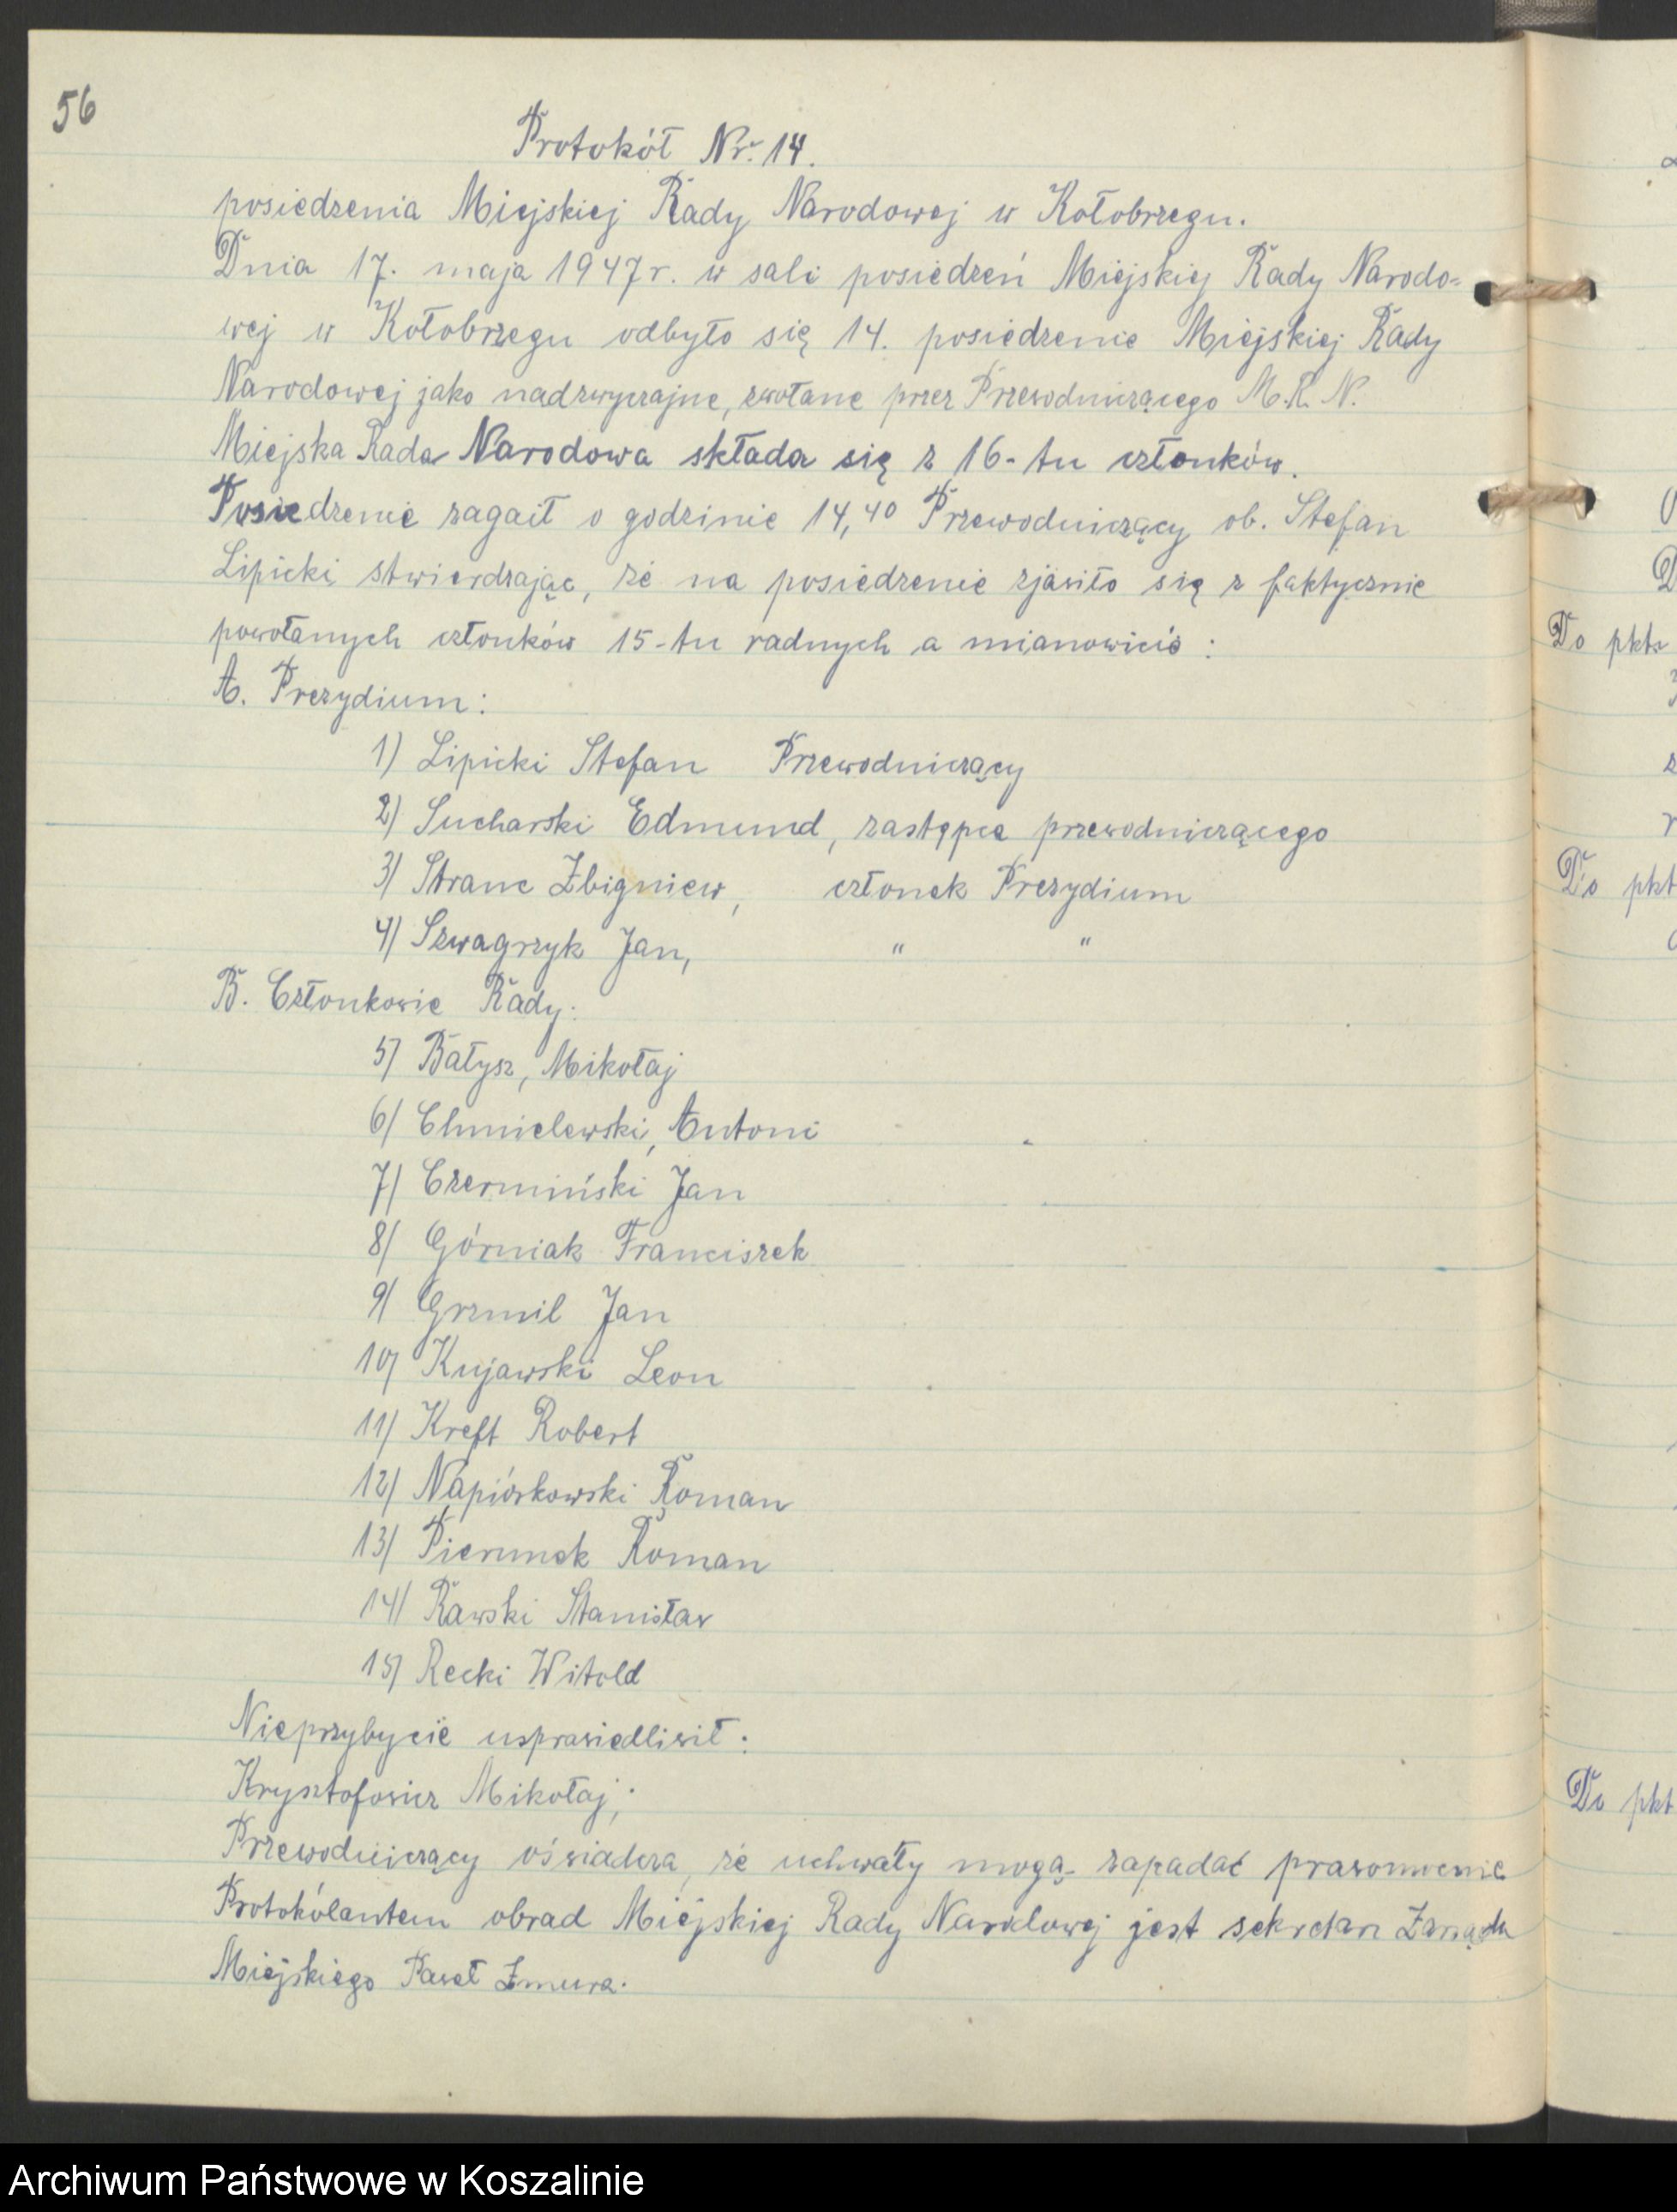 56
Protokół Nr. 14.
posiedzenia Miejskiej Rady Narodowej w Kołobrzegu.
Dnia 17. maja 1947 r. w sali posiedzeń Miejskiej Rady Narodo=
wej w Kołobrzegu odbyło się 14. posiedzenie Miejskiej Rady
Narodowej jako nadzwyczajne, zwołane przez Przewodniczącego M.R.N.
Miejska Rada Narodowa składa się z 16-tu członków.
Posiedzenie zagaił o godzinie 14,40 Przewodniczący ob. Stefan
Lipicki stwierdzając, że na posiedzenie zjawiło się z faktycznie
powołanych członków 15-tu radnych a mianowicie :
A. Prezydium :
1) Lipicki Stefan Przewodniczący
2) Sucharski Edmund, zastępca przewodniczącego
3) Stranc Zbigniew, członek Prezydium
4) Szwagrzyk Jan, " "
B. Członkowie Rady:
5) Bałysz, Mikołaj
6) Chmielewski, Antoni
7) Czermiński Jan
8) Górniak Franciszek
9) Grzmil Jan
10) Kujawski Leon
11) Kreft Robert
12) Napiórkowski Roman
13) Pierunek Roman
14) Rawski Stanisław
15) Recki Witold
Nieprzybycie usprawiedliwił :
Krysztofowicz Mikołaj;
Przewodniczący oświadcza, że uchwały mogą zapadać prawomocnie
Protokólantem obrad Miejskiej Rady Narodowej jest sekretarz Zarządu
Miejskiego Paweł Żmura.
Do pkt
Do pkt
Do pkt
Archiwum Państwowe w Koszalinie